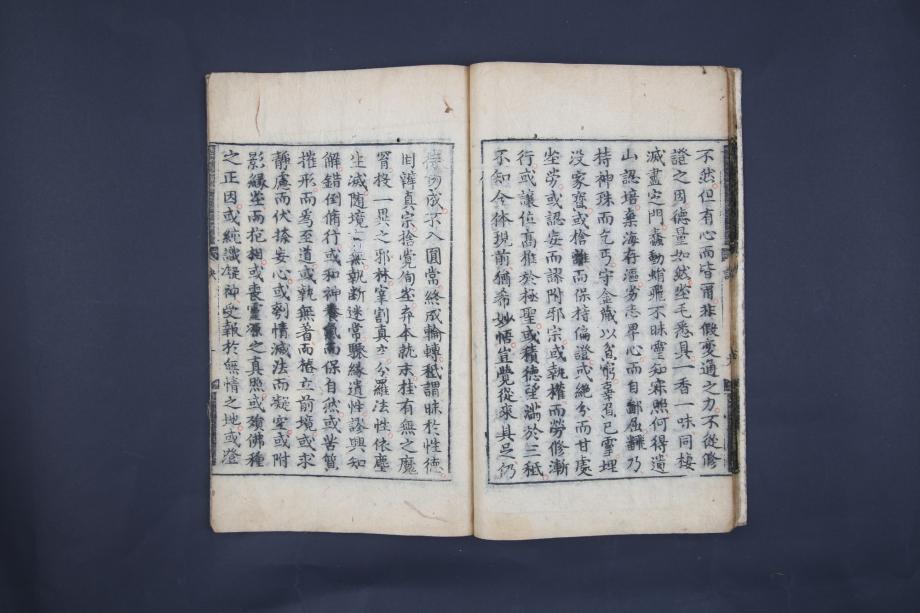 不然但有心而皆爾非假變通之力不從修
證之因德量如然塵毛悉具一香一味同棲
滅盡㝎之門蠢動蛸飛不昧靈知寂照何得遺
山認培棄海存漚劣志卑心而自鄙屈難乃
持神珠而乞丐守金藏以貧窮辜負己靈埋
没家寶或捨離而保持偏證或絕分而甘處
塵勞或認妄而謬附邪宗或執權而勞修漸
行或讓位高推於極聖或積德望滿於三秪
不知全体現前猶希妙悟豈覺從來具足仍
待功成不入圓常終成輪轉秪謂昧於性德
罔辯真宗捨覺徇塵弃本就末挂有無之魔
罥投一異之邪林宰割真空分羅法性依塵
生滅随境有無執斷迷常驟緣遺性謬興知
解錯倒脩行或和神養氣而保自然或苦質
摧形而為至道或執無著而樁立前境或求
靜慮而伏捺妄心或刳情滅法而凝空或附
影緣塵而抱相或喪靈源之真照或殞佛種
之正因或純識凝神受報於無情之地或澄
訣